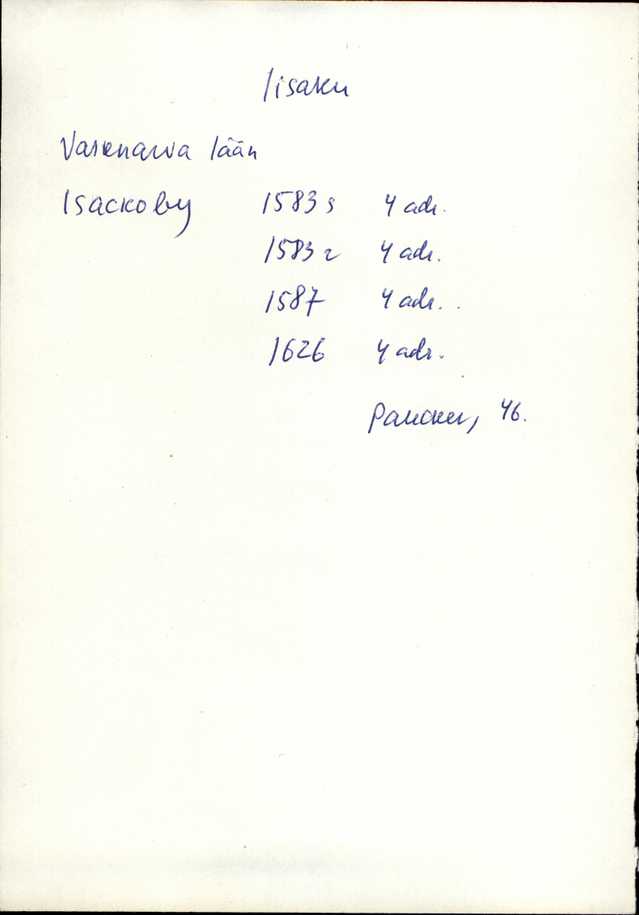 Iisaku
Vasknarva lään
Isackoby 1583 s 4 adr.
1583 r 4 adr.
1587 4 adr.
1626 4 adr.
Paucker, 46.